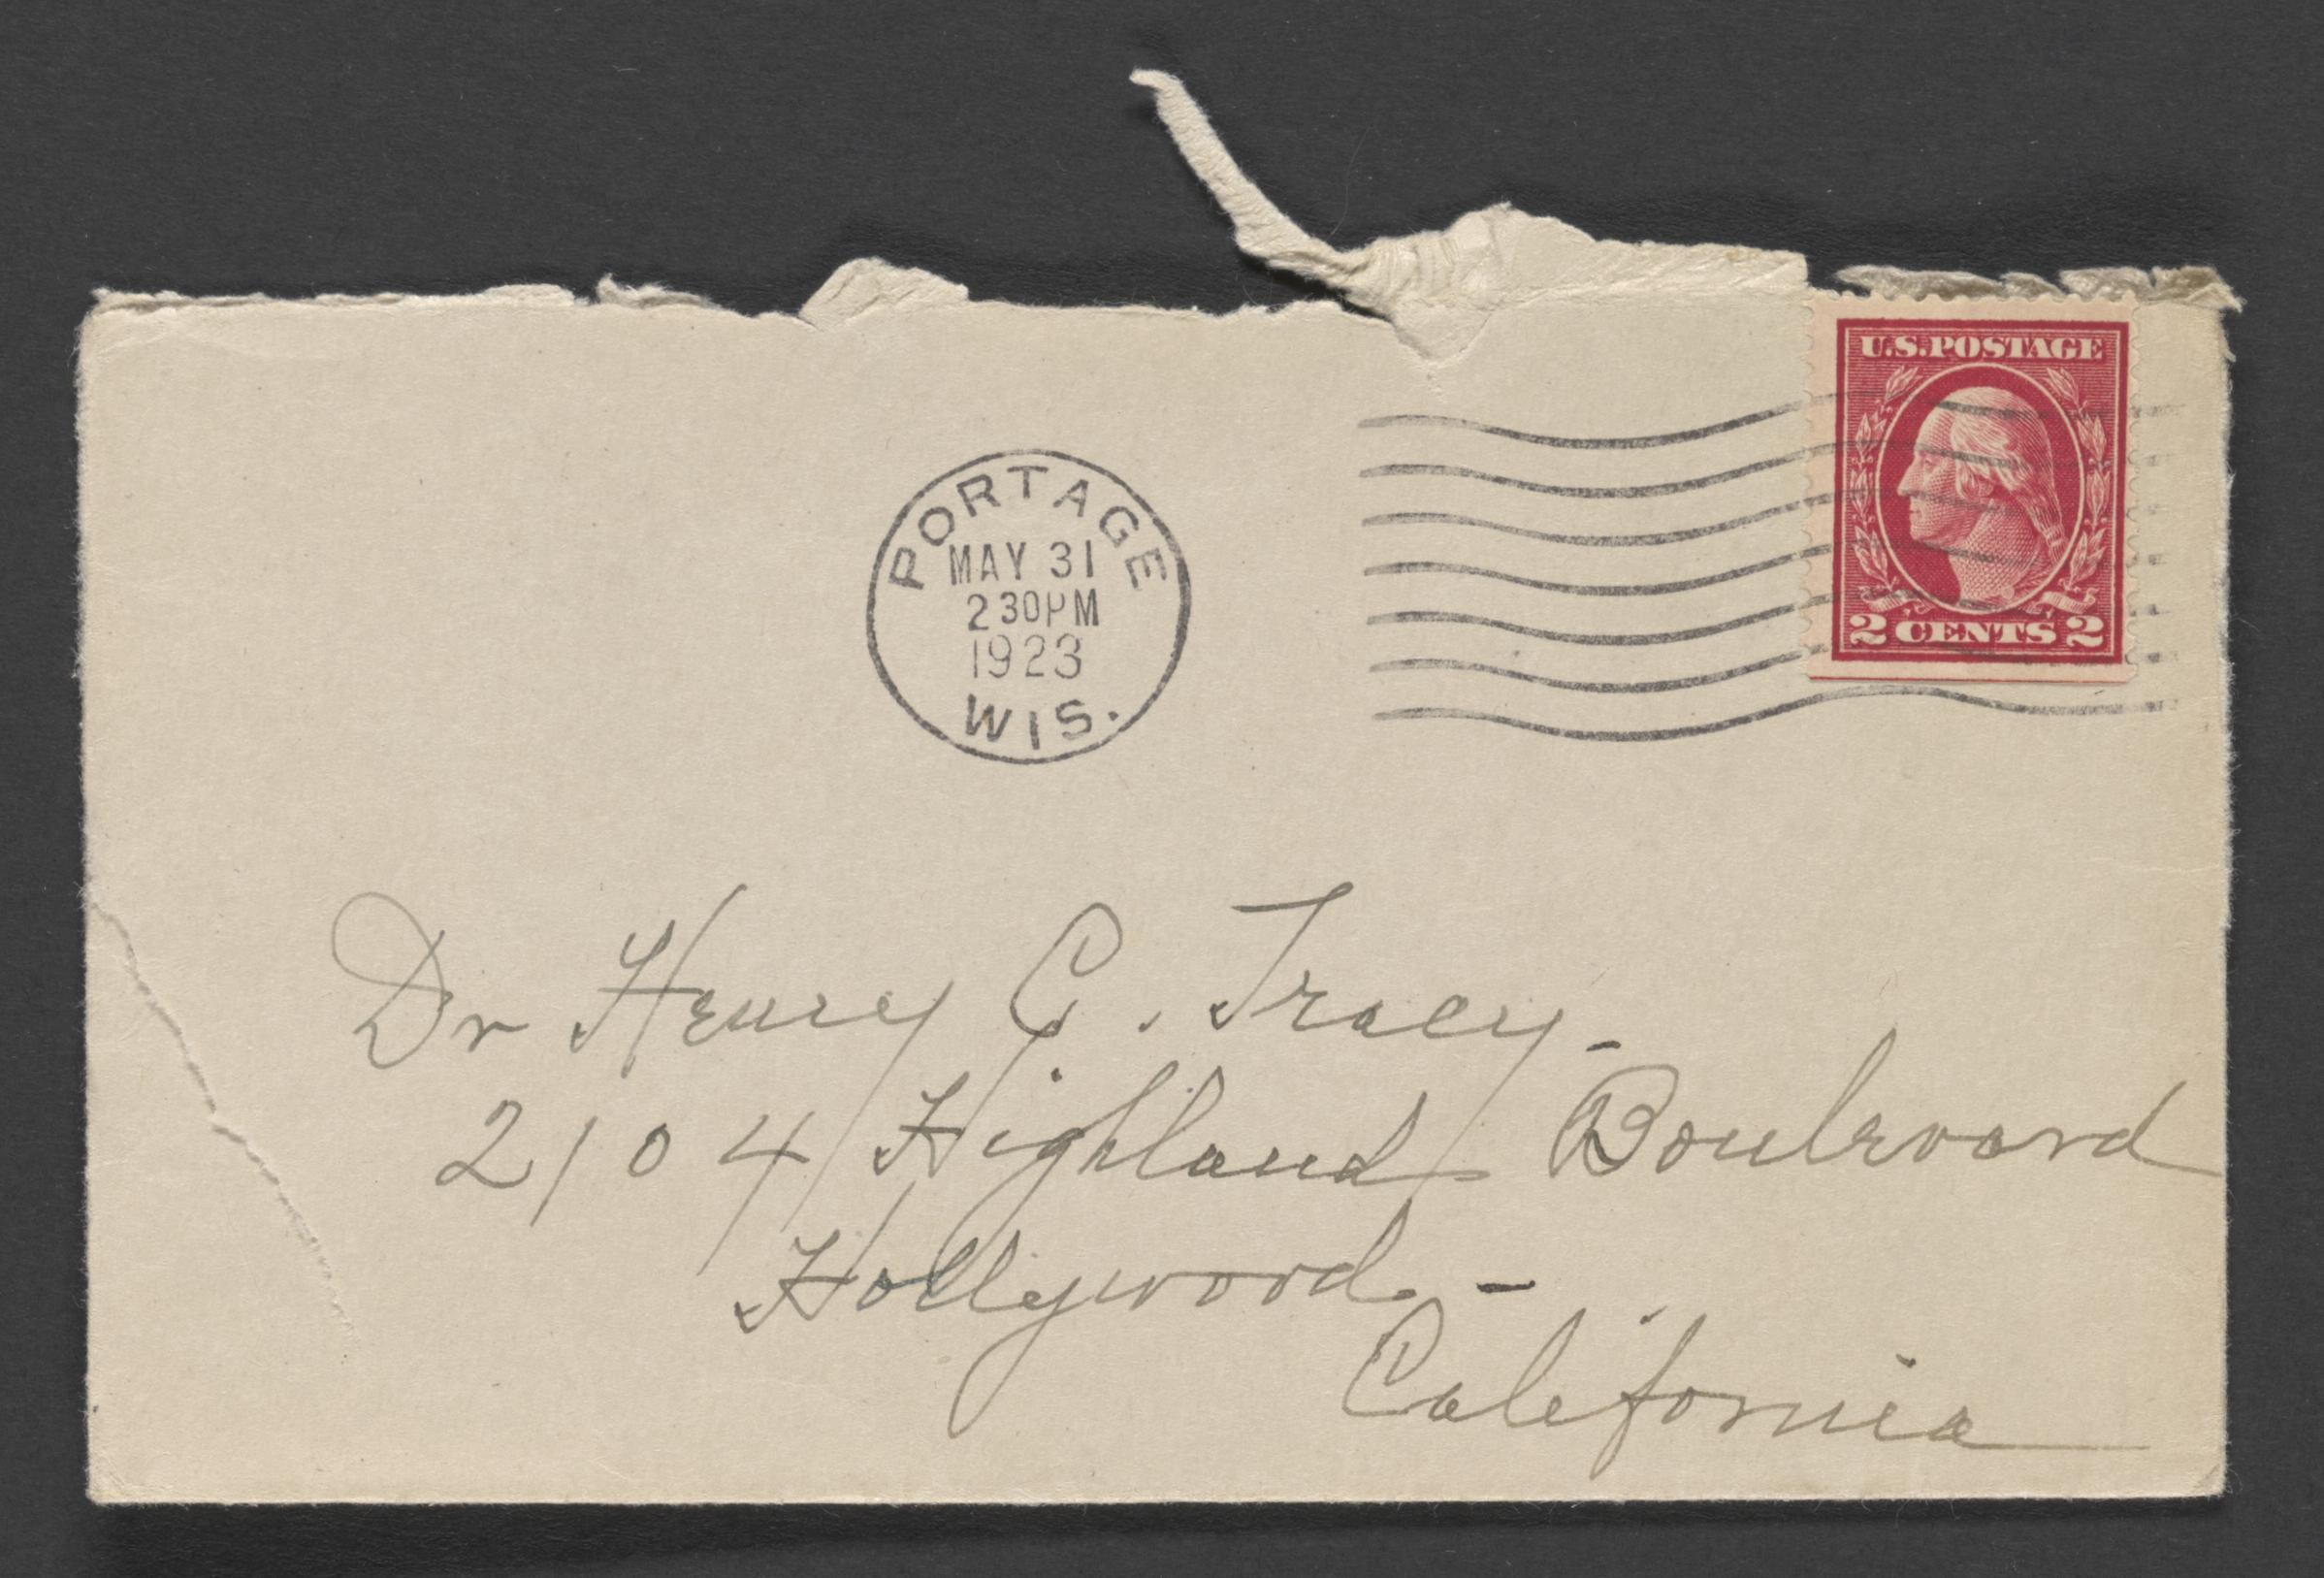 U.S.POSTAGE
2 CENTS 2
PORTAGE
MAY 31
2 30PM
1923
WIS.
Dr Henry C. Tracy-
2104 Highland Boulevard
Hollywood. -
California